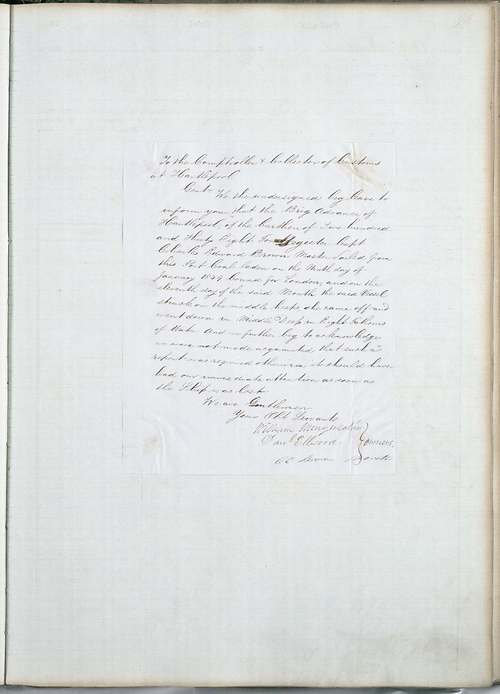 To the Comptroller & Collector of Customs
at Hartlepool
Gents We the undersigned beg leave to
inform you that the Brig Advance of
Hartlepool of the burthen of Two hundred
and Thirty Eight Tons Register Capt
Charles Edward Brown Master Sailed from
this Port Coal laden on the Ninth day of
January 1844 bound for London, and on the
eleventh day of the said Month the said Vessel
struck on the middle she came off and
went down in Middle Deep in Eight Fathoms
of Water And we further beg to acknowledge
we were not made acquainted, that such a
report was required otherwise, it should have
had our immediate attention as soon as
the Ship was lost
We are Gentlemen
Your Obt Servants
William
Ellwood } owners
C E Brown Master